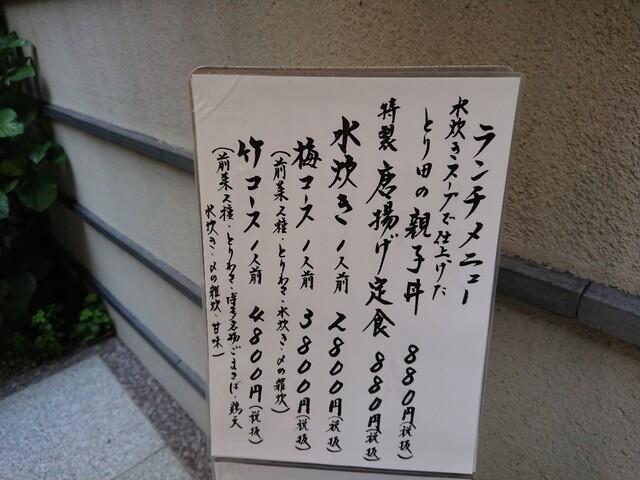 ランチメニュー
水炊きスープで仕上げた
とり田の親子丼 880円(税抜)
特製 唐揚げ定食 880円(税抜)
水炊き 1人前 2800円(税抜)
梅コース 1人前 3800円(税抜)
(前菜2種・とりわさ・水炊き・〆の雑炊)
竹コース 1人前 4800円(税抜)
(前菜2種・とりわさ・博多名物ごまさば・鶏天
水炊き・〆の雑炊・甘味)